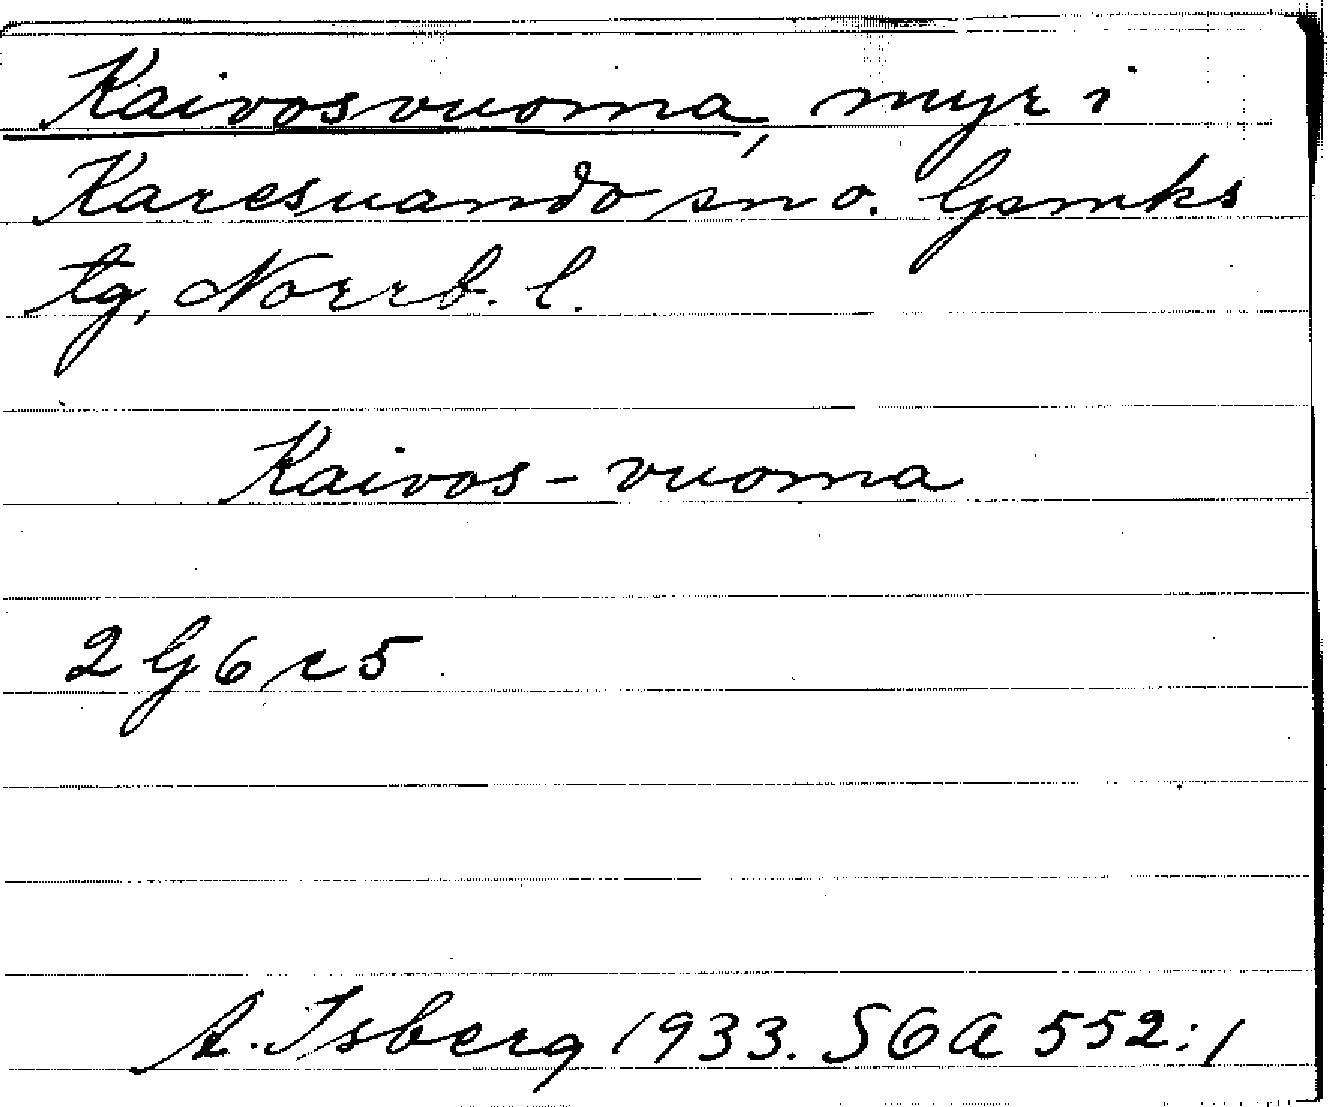 Kaivosvuoma, myr i
Karesuando sn o. lpmks
tg, Norrb. l.
Kaivos-vuoma
2 G 6 c 5
A. Isberg 1933. SOA 552:1